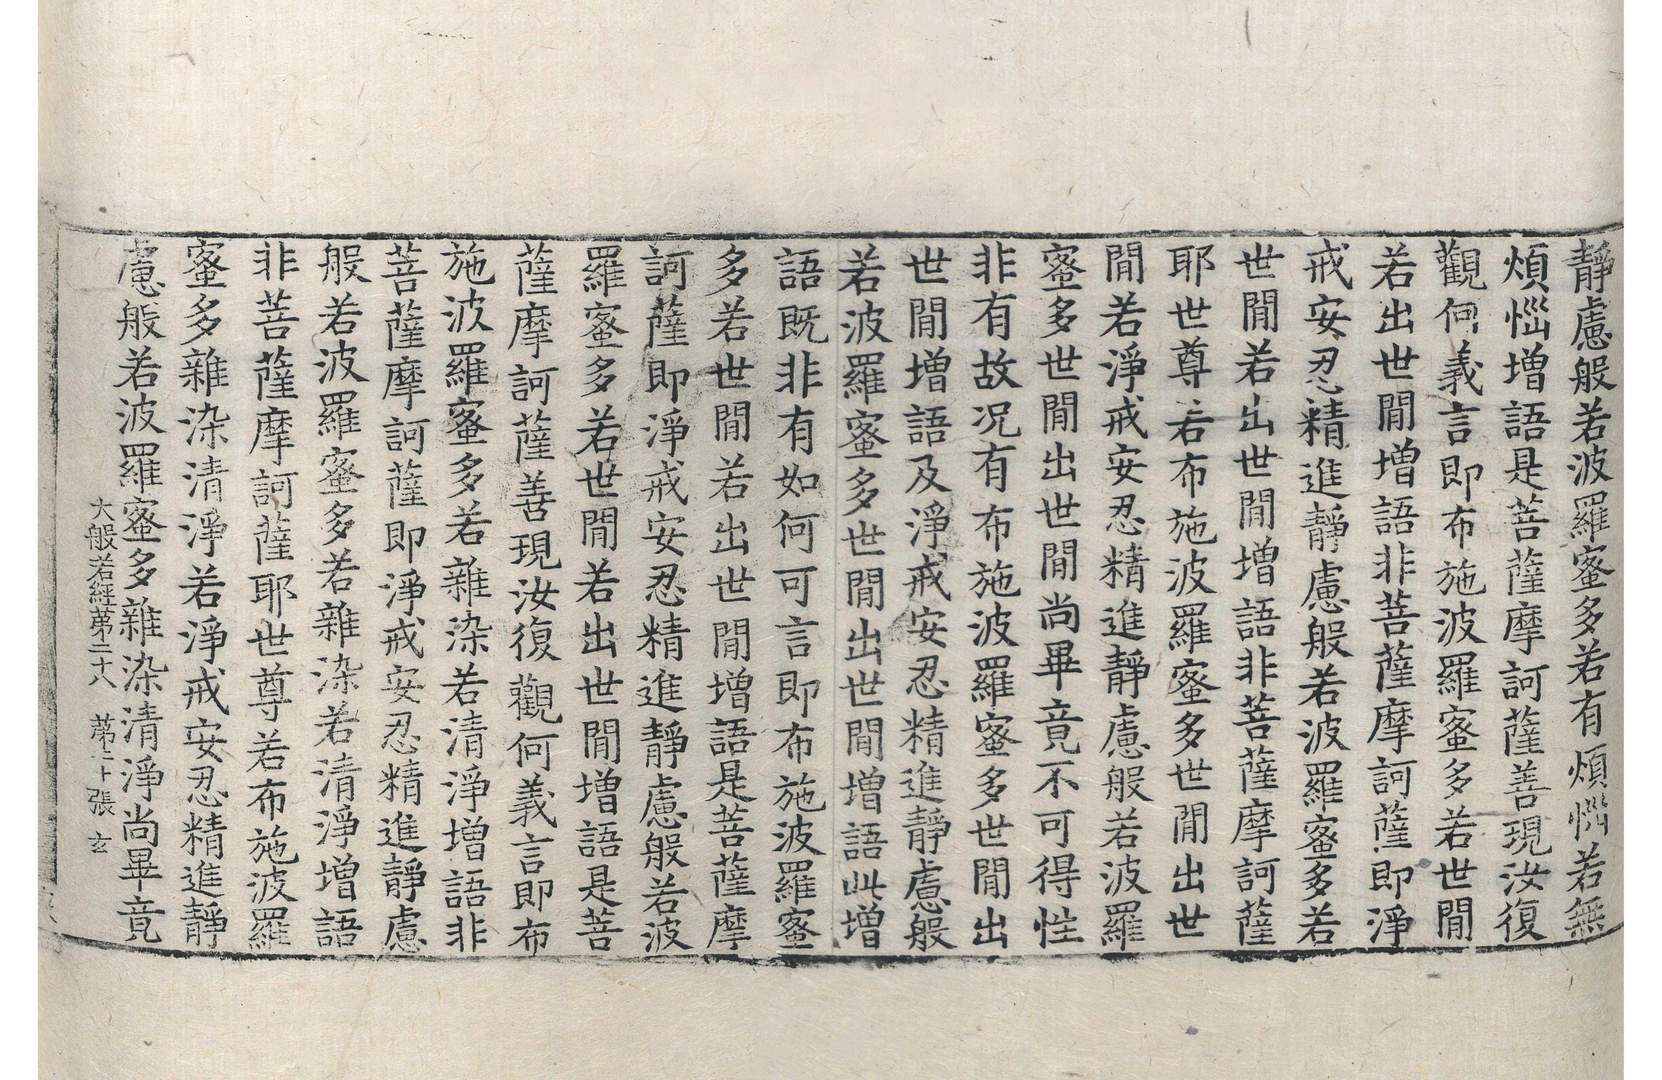 靜慮般若波羅蜜多若有煩惱若無
煩惱增語是菩薩摩訶薩善現汝復
觀何義言即布施波羅蜜多若世間
若出世間增語非菩薩摩訶薩即淨
戒安忍精進靜慮般若波羅蜜多若
世間若出世間增語非菩薩摩訶薩
耶世尊若布施波羅蜜多世間出世
間若淨戒安忍精進靜慮般若波羅
蜜多世間出世間尚畢竟不可得性
非有故況有布施波羅蜜多世間出
世間增語及淨戒安忍精進靜慮般
若波羅蜜多世間出世間增語此增
語既非有如何可言即布施波羅蜜
多若世間若出世間增語是菩薩摩
訶薩即淨戒安忍精進靜慮般若波
羅蜜多若世間若出世間增語是菩
薩摩訶薩善現汝復觀何義言即布
施波羅蜜多若雜染若清淨增語非
菩薩摩訶薩即淨戒安忍精進靜慮
般若波羅蜜多若雜染若清淨增語
非菩薩摩訶薩耶世尊若布施波羅
蜜多雜染清淨若淨戒安忍精進靜
慮般若波羅蜜多雜染清淨尚畢竟
大般若經第二十八 第 十張 玄